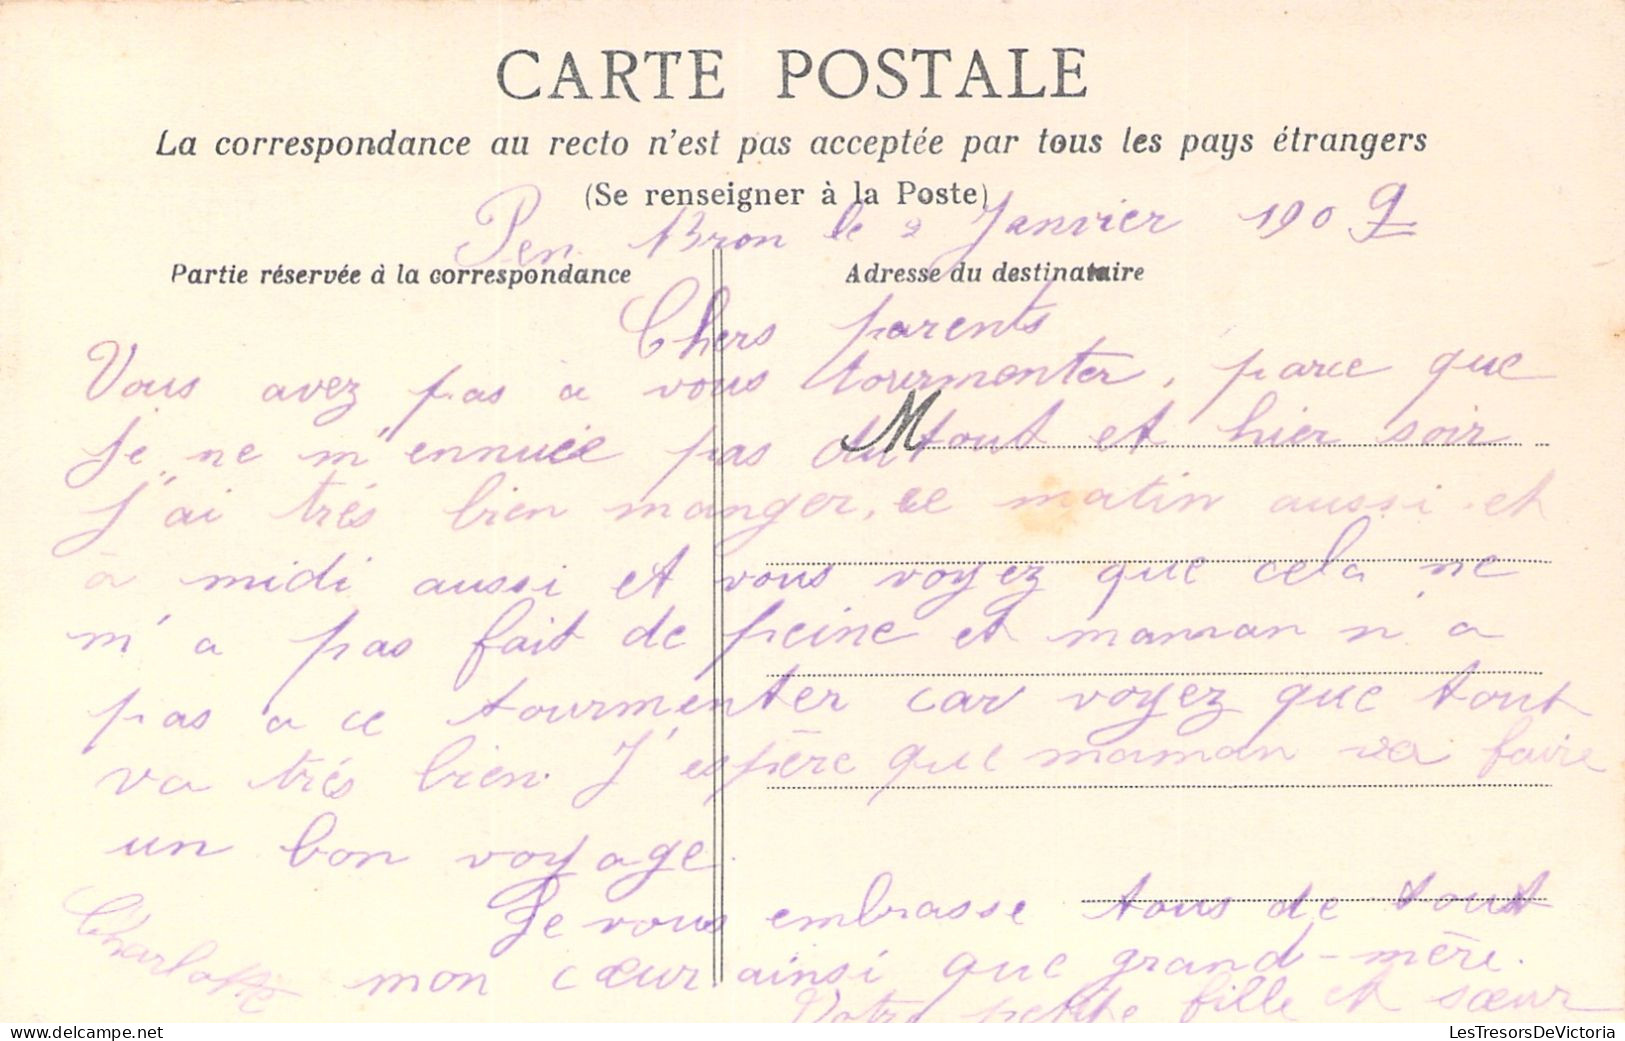 CARTE POSTALE
La correspondance au recto n'est pas acceptée par tous les pays étrangers
(Se renseigner à la Poste)
Pen Bron le 2 Janvier 1909
Partie réservée à la correspondance
Adresse du destinataire
Chers parents
Vous avez pas a vous tourmenter, parce que
M
Je ne m'ennuie pas du tout et hier soir
J'ai trés bien manger, ce matin aussi et
à midi aussi et vous voyez que cela ne
m'a pas fait de peine et maman n'a
pas a ce tourmenter car voyez que tout
va trés bien. J'espère que maman va faire
un bon voyage.
Je vous embrasse tous de tout
mon cœur ainsi que grand-mère.
Votre petite fille et sœur
Charlotte
LesTresorsDeVictoria